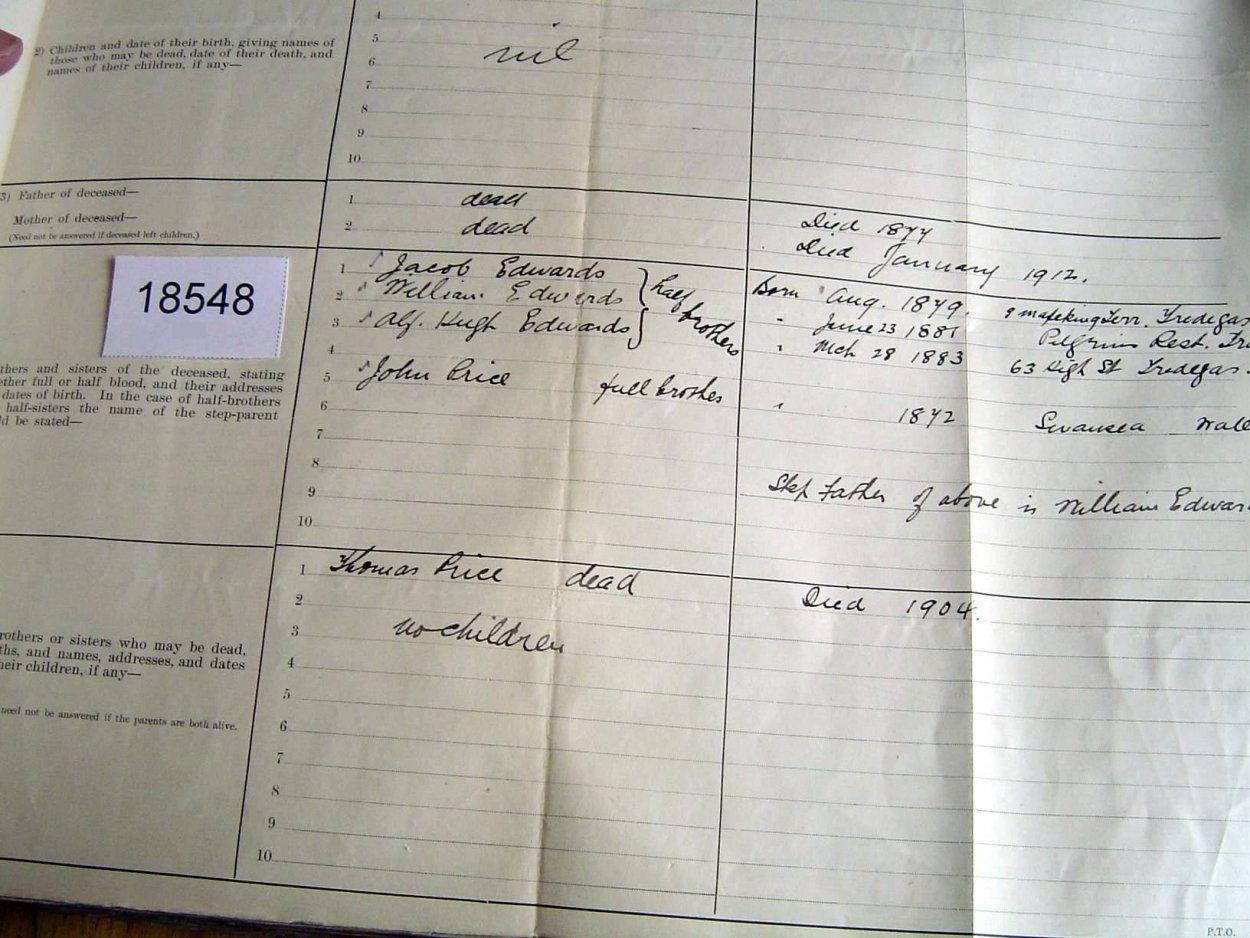 4
2) Children and date of their birth, giving names of
those who may be dead, date of their death, and
names of their children, if any—
5
6 nil
7
8
9
10
3) Father of deceased— 1 dead Died 1877
Mother of deceased— 2 dead Died January 1912.
(Need not be answered if deceased left children.)
18548
1 Jacob Edwards half brothers Born Aug. 1879. 9 Mafeking Terr. Tredegar
2 William Edwards " June 23 1881 Pilgrims Rest.
3 Alf. Hugh Edwards " Mch 28 1883 63 High St Tredegar.
4
thers and sisters of the deceased, stating
ether full or half blood, and their addresses
dates of birth. In the case of half-brothers
half-sisters the name of the step-parent
ld be stated—
5 John Price full brother " 1872 Swansea Wale
6
7
8
9 Step Father of above is William Edwar
10
1 Thomas Price dead Died 1904.
2
3 no children
rothers or sisters who may be dead,
ths, and names, addresses, and dates
heir children, if any—
4
5
need not be answered if the parents are both alive.
6
7
8
9
10
P.T.O.